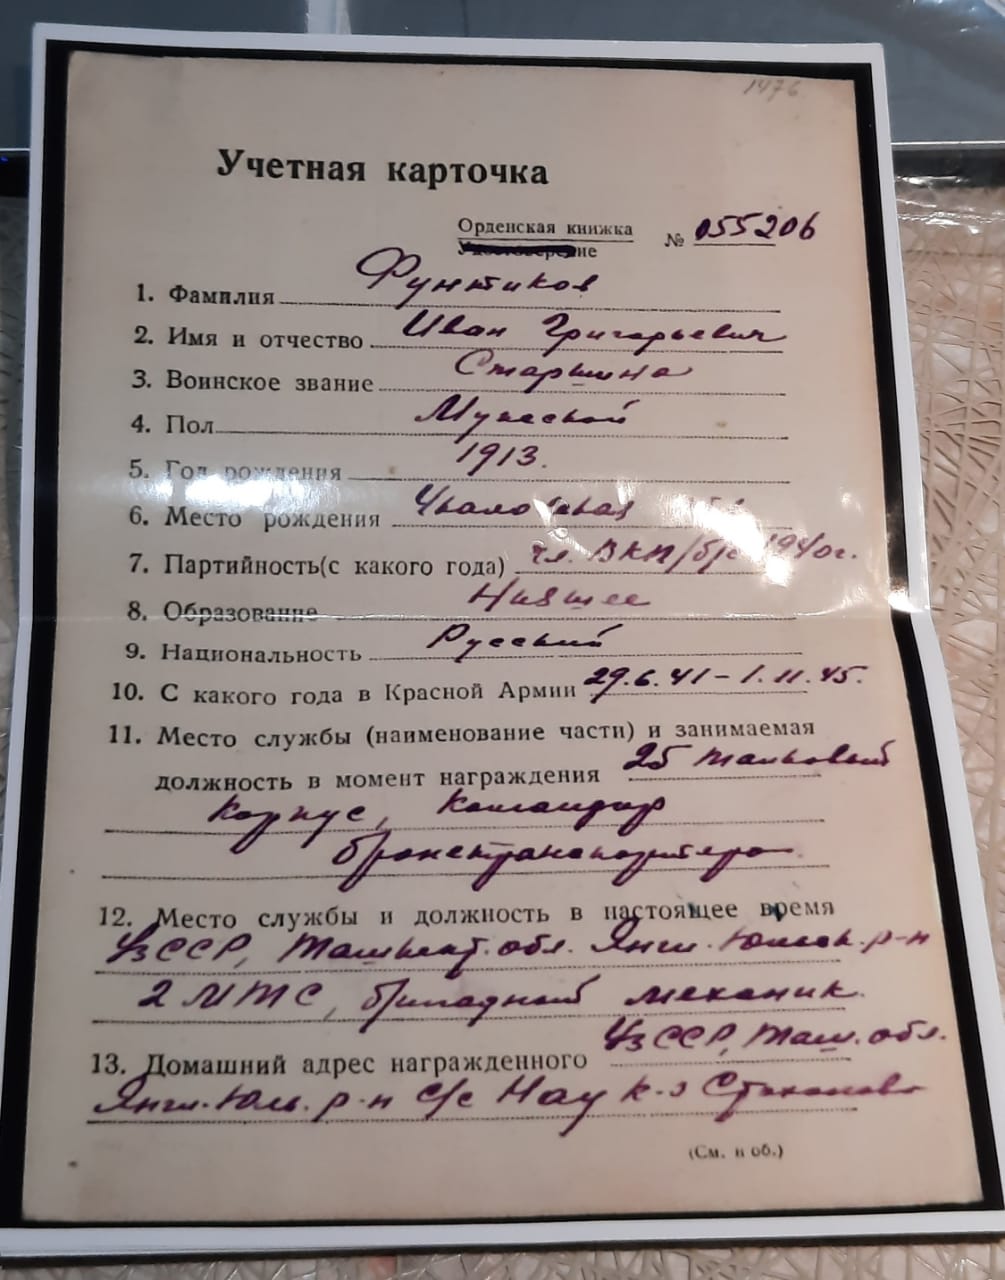 1476
Учетная карточка
Орденская книжка
Удостоверение № 055206
1. Фамилия Фунтиков
2. Имя и отчество Иван Григорьевич
3. Воинское звание Старшина
4. Пол Мужской
5. Год рождения 1913.
6. Место рождения
7. Партийность(с какого года) чл. ВКП/б/с 1940г.
8. Образование Низшее
9. Национальность Русский
10. С какого года в Красной Армии 29.6.41 – 1.11.45.
11. Место службы (наименование части) и занимаемая
должность в момент награждения 25 танковый
корпус, командир
бронетранспортера.
12. Место службы и должность в настоящее время
УзССР, Ташкент. обл. р-н
2 МТС, бригадный механик.
13. Домашний адрес награжденного УзССР, Таш. обл.
Янгл.-Юль. р-н с/с Нау к-з Стаханова
(См. н об.)